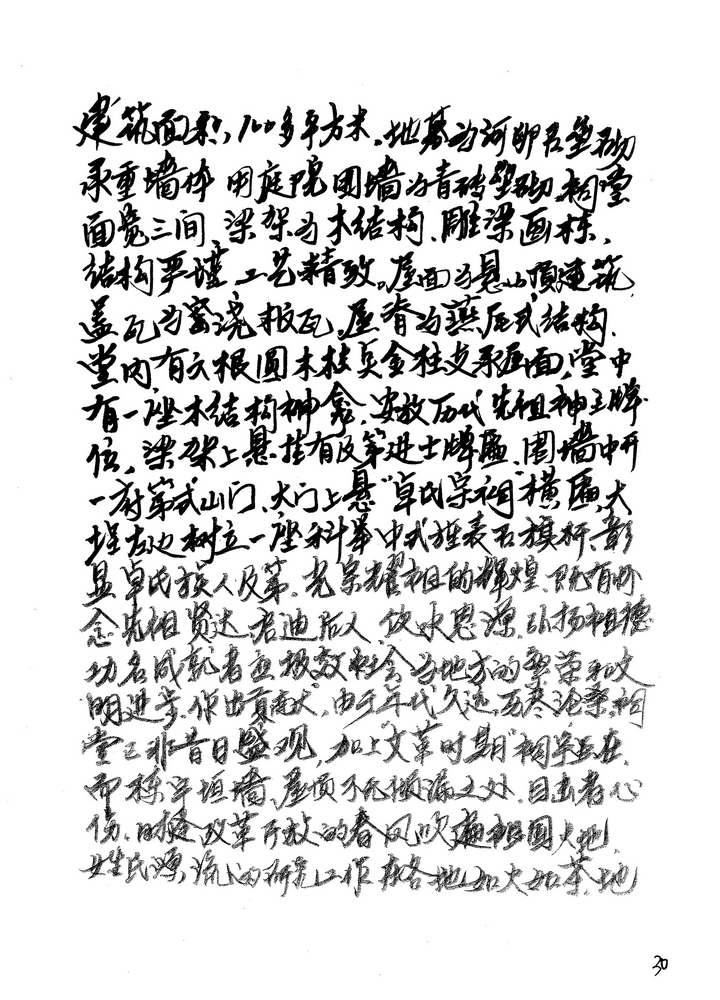 建筑面积,100多平方米。地基为河卵石垒砌
承重墙体 用庭院围墙为青砖垒砌,祠堂
面宽三间,梁架为木结构、雕梁画栋,
结构严谨,工艺精致。屋面为悬山顶建筑,
盖瓦为窑浇板瓦,屋脊为燕尾式结构,
堂内有六根圆木柱兵金柱支承屋面,堂中
有一座木结构神龛,安放历代先祖神主牌
位,梁架上悬挂有及第进士牌匾,围墙中开
一府第式山门、大门上悬“卓氏宗祠”横匾,大
埕左边树立一座科举中式旌表石旗杆,彰
显卓氏族人及第,光宗耀祖的辉煌,既有怀
念先祖贤达,启迪后人,饮水思源,弘扬祖德
功名成就者应报效社会为地方的繁荣和文
明进步,作出贡献”,由于年代久远,历尽沧桑,祠
堂已非昔日盛观,加上“文革时期”祠宇虽在,
而栋宇垣墙,屋顶不无撤漏之处,目击者心
伤,时逢改革开放的春风吹遍祖国大地,
姓氏源流的研究工作在各地如火如荼,地
30